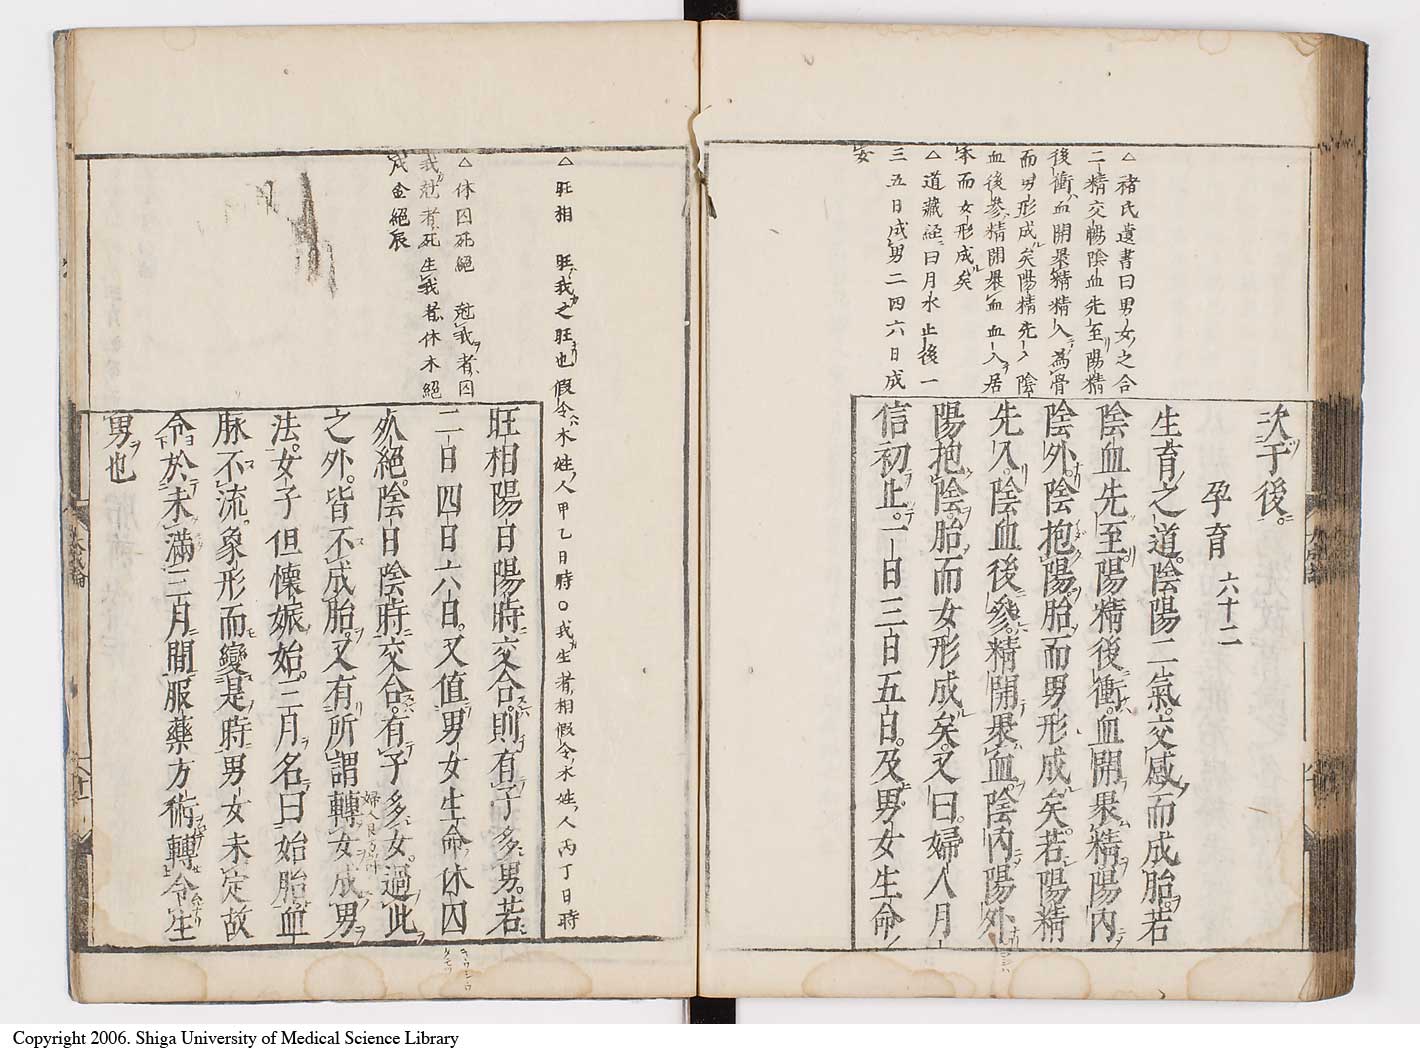 △褚氏遺書曰男女之合
二精交暢陰血先至陽精
後衝血開褁精精入為骨
而男形成矣陽精先入陰
血後參精開褁血血入居
本而女形成矣
△道藏經曰月水止後一
三五日成男二四六日成
女
次于後。
孕育 六十二
生育之道。陰陽二氣。交感而成胎。若
陰血先至。陽精後衝。血開褁精。陽內
陰外。陰抱陽胎。而男形成矣。若陽精
先入。陰血後參。精開褁血。陰內陽外
陽抱陰胎而女形成矣。又曰。婦人月
信初止。一日三日五日。及男女生命
△旺相 旺我之旺也假令木姓人甲乙日時〇我生者相假令木姓人丙丁日時
△休囚死絕 尅我者囚
我尅者死生我者休木絕
戌金絕辰
旺相陽日陽時交合。則有子多男。若
二日四日六日。又值男女生命休囚
死絕。陰日陰時交合。有子多女。過此
之外。皆不成胎。又有所謂轉女成男
法。女子但懷娠始。三月名曰始胎血
脉不流。象形而變。是時男女未定故
令於未滿三月間服藥方術轉令生
男也
大成論
六十一
Copyright 2006. Shiga University of Medical Science Library